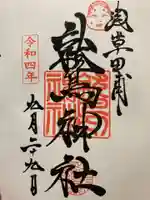 浅草田甫
鷲神社
令和四年
月二十九日